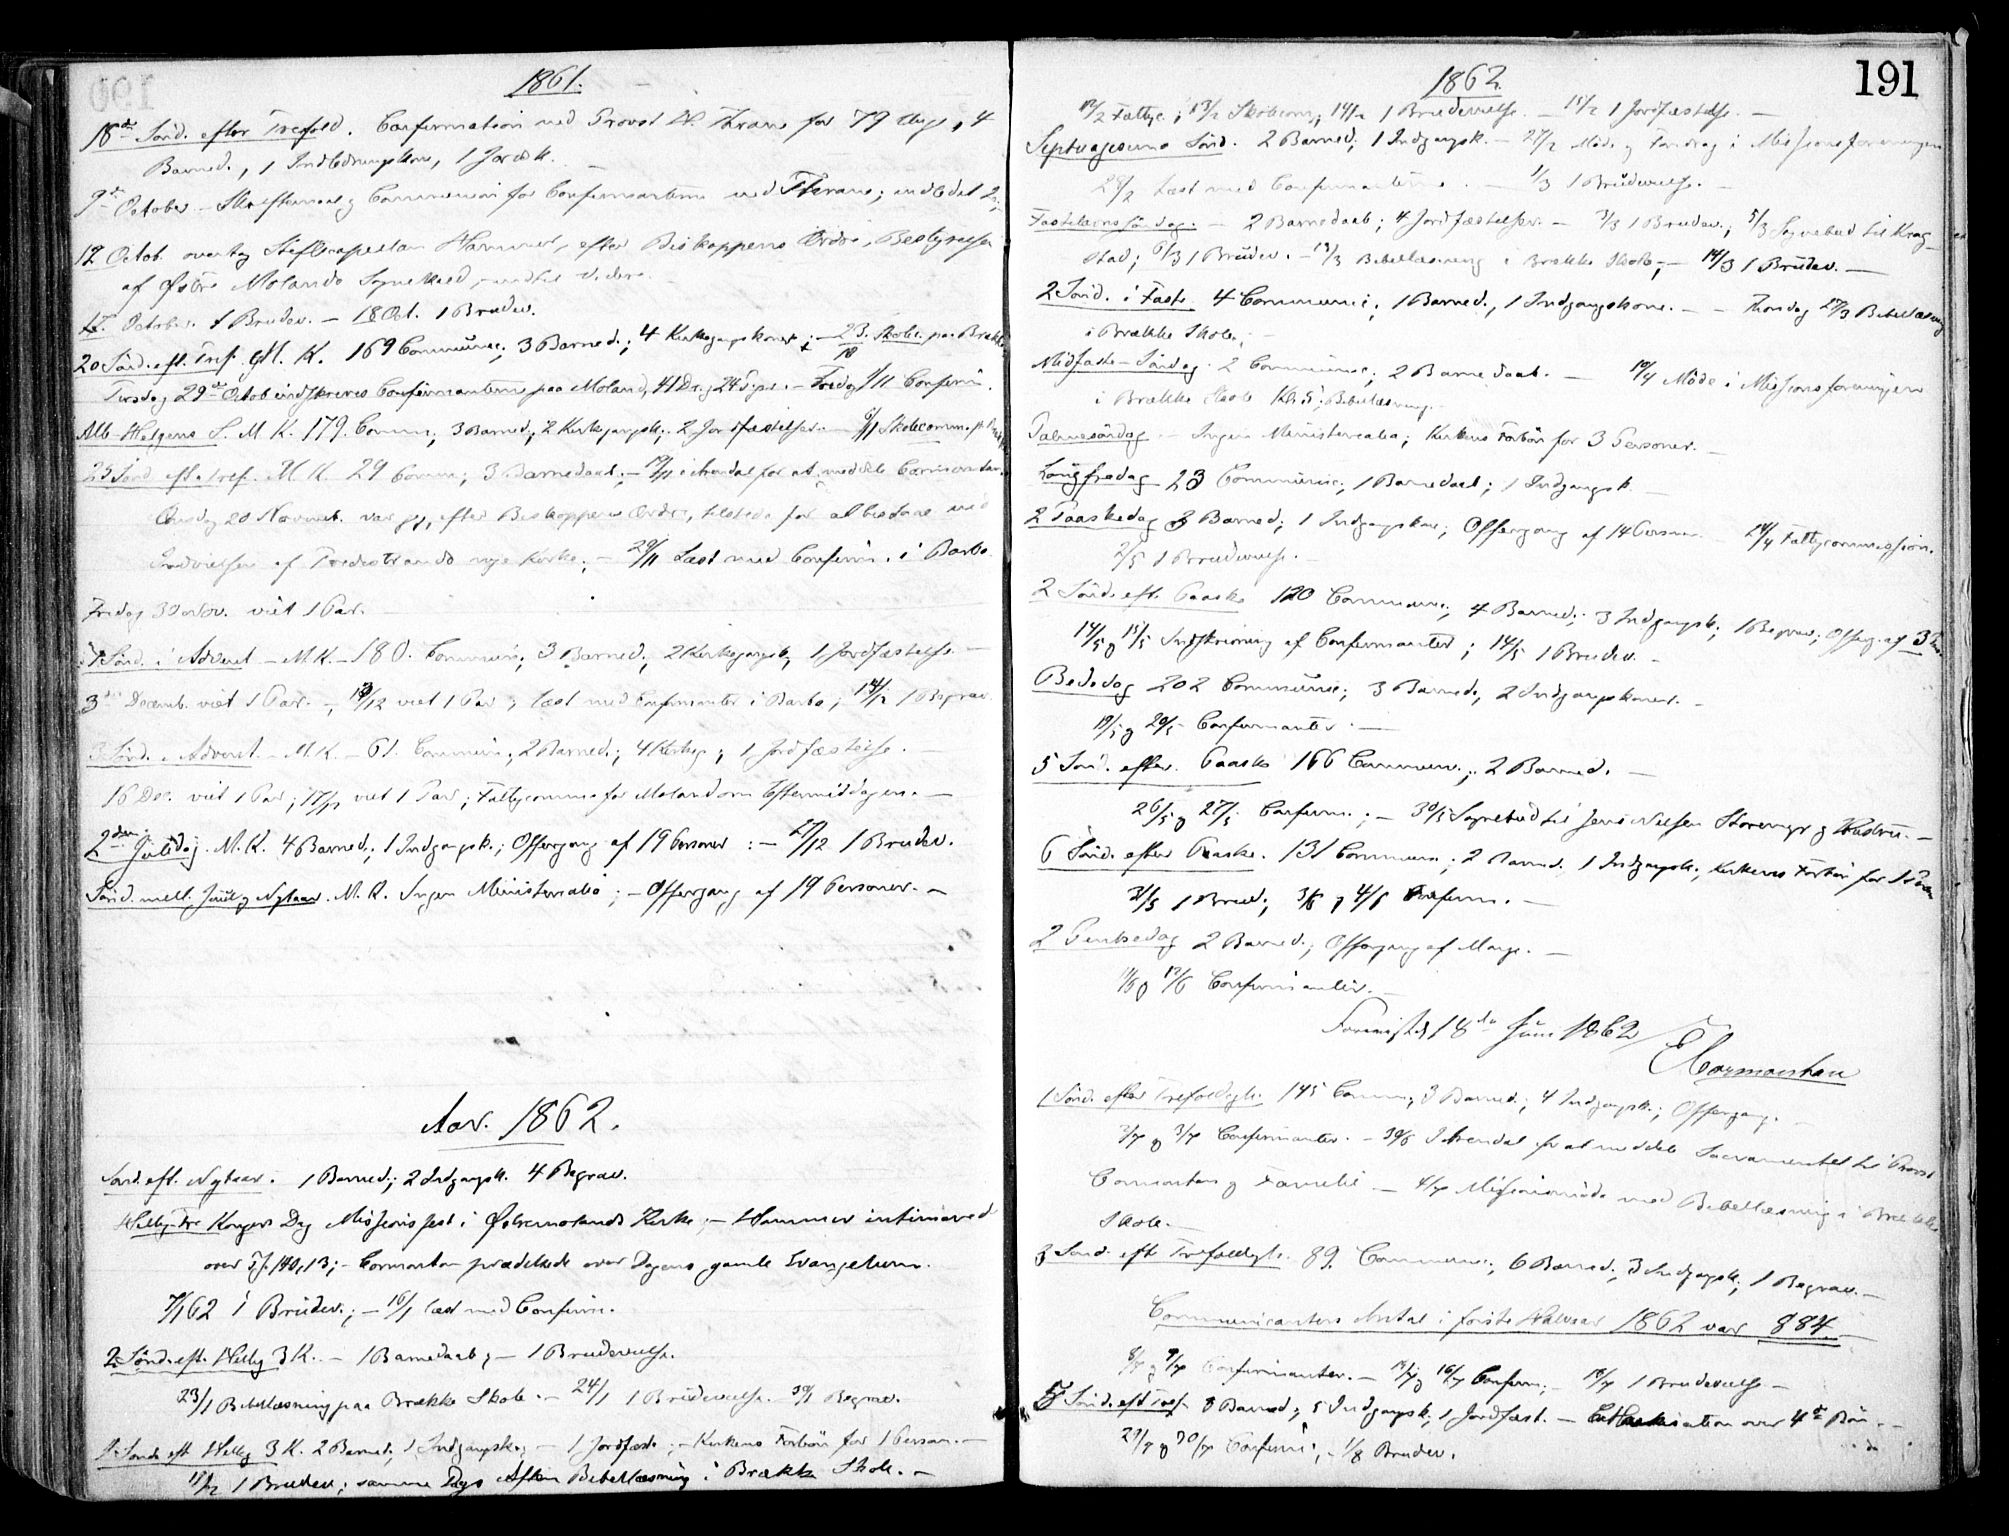 1861.
18de Sønd. efter Trefold. Confirmation ved Provst Thrane for 79 Unge, 4
Barned., 1 Indledningskone, 1 Jordf.
9de October – Skriftemaal og Communion for Confirmanterne ved Thrane; indledet
12 Octob. overtog Stiftscapellan Hammer, efter Biskoppens Ordre, Bestyrelsen
af Østre Molands Sognekald, indtil Videre.
17. October 1 Brudev. – 18 Oct. 1 Brudev.
20 Sønd. eft. Tref. M. K. 169 Commun.; 3 Barned.; 4 Kirkegangskoner; – 23/10 Skole paa Brække
Tirsdag 29de Octob indskreves Confirmanterne paa Moland, 41 Dr. og 24 Piger. – Fredag 1/11 Confirm.
Alle-Helgens S. M. K. 179. Comm.; 3 Barned.; 2 Kirkegangsk.; 2 Jordfæstelser. – 6/11 Skolecomm.
25 Sønd. eft. Tref. M. K. 29 Comm.; 3 Barnedaab; – i Arendal for at meddele
Onsdag 20 Novemb. var jeg, efter Biskoppens Ordre, tilstede for at bistaae ved
Indvielsen af Fredestrands nye Kirke; – 29/11 Læst med Confirm. i Barbo.
Fredag viet 1 Par.
1 Sønd. i Advent – M.K. – 180. Commun.; 3 Barned.; 2 Kirkegangsk.; 1 Jordfæstelse. –
3die Decemb. viet 1 Par. –, 13/12 viet 1 Par og læst med Confirmanter i Barbo; 14/12 1 Begrav.
3 Sønd. i Advent – M.K. – 61. Commun.; 2 Barned.; 4 Kirkeg.; 1 Jordfæstelse. –
16 Dec. viet 1 Par; 17/12 viet 1 Par; Fattigcomm. for Moland om Eftermiddagen. –
2den Juledag. M. K. 4 Barned.; 1 Indgangsk.; Offergang af 19 Personer : – 27/12 1 Brudev.
Sønd. mell. Juul og Nytaar. M. K. Ingen Ministerialia; – Offergang af 19 Personer. –
Aar. 1862.
Sønd. eft. Nytaar. 1 Barned.; 2 Indgangsk. 4 Begrav.
Hellig-Tre Kongers Dag Missionsfest i Østremolands Kirke; – Hammer intimered
over Ps. 140,13; – Cormontan prædikede over Dagens gamle Evangelium.
7/1 62 1 Brudev.; – 16/1 læst med Confirm.
2 Sønd. eft. Hellig 3 K. – 1 Barnedaab; – 1 Brudevielse.
23/1 Bibellæsning paa Brække Skole. – 24/1 1 Brudevielse. 30/1 Begrav.
Sønd. eft. Hellig 3 K. 2 Barned.; 1 Indgangsk.; – 1 Jordfæst.; – Kirkens Forbøn for 1 Person. –
11/2 1 Brudev.; samme Dags Aften Bibellæsning i Brække Skole. –
1862.
191
12/2 Fattigc.; 13/2 Skolecom.; 14/2 1 Brudevielse. – 15/2 1 Jordfæstelse. –
Septuagesima Sønd. 2 Barned.; 1 Indgangsk. – 27/2 Møde og Foredrag i Missionsforeningen
28/2 Læst med Confirmanterne. – 1/3 1 Brudevielse. –
Fastelavnssøndag. – 2 Barnedaab; 4 Jordfæstelser. – 3/3 1 Brudev.; 5/3 Sognebud til Krag-
stad; 6/3 1 Brudev. – 13/3 Bibellæsning i Brække Skole; – 14/3 1 Brudev. –
2 Sønd. i Faste. 4 Communi.; 1 Barned.; 1 Indgangskone. – Thorsdag 27/3 Bibellæsning
i Brække Skole. –
Midfaste-Søndag. 2 Communic.; 2 Barnedaab. – 10/4 Møde i Missionsforeningen
i Brække Skole Kl. 5; Bibellæsning. –
Palmesøndag. – Ingen Ministerialia; Kirkens Forbøn for 3 Personer. –
Langfredag 23 Communic.; 1 Barnedaab; 1 Indgangsk. –
2 Paaskedag 3 Barned.; 1 Indgangskone; Offergang af 14 Person. 24/4 Fattigcommission.
2/5 1 Brudevielse. –
2 Sønd. eft. Paaske 120 Commun.; 4 Barned.; 3 Indgangsk.; 1 Begrav.; Offerg. af 3
14/5 og 15/5 Indskrivning af Confirmanter; 14/5 1 Brudev. –
Bededag 202 Communic.; 3 Barned.; 2 Indgangskoner. –
19/5 og 20/5 Confirmanter. –
5 Sønd. efter Paaske 166 Commun.; 2 Barned. –
26/5 og 27/5 Confirm.; – 30/5 Sognebud til Jens Nielsen Storemyr og Hustru. –
6 Sønd. efter Paaske. 131 Commun.; 2 Barned. 1 Indgangsk.; Kirkens Forbøn for 1
31/5 1 Brud.; 3/6 og 4/6 Confirm. –
2 Pintsedag 2 Barned.; Offergang af Mange. –
11/6 og 12/6 Confirmanter. –
Forevist d. 18de Juni 1862
Cormontan
1 Sønd. efter Trefoldigh. 145 Comm.; 3 Barned.; 4 Indgangsk.; Offergang. –
2/7 og 3/7 Confirmanter. – 30/6 I Arendal for at meddele Sacramentet til Provst
Cormontan og Familie – 4/7 Missionsmøde med Bibellæsning i Brække
Skole. –
3 Sønd. eft. Trefoldigh. 89. Commun.; 6 Barned.; 3 Indgangsk.; 1 Begrav. –
Communicanters Antal i første Halvaar 1862 var 884. –
8/7 og 9/7 Confirmanter. – 15/7 og 16/7 Confirm.; – 18/7 1 Brudevielse –
5 Sønd. eft. Tref. 8 Barned.; 5 Indgangsk.; 1 Jordfæst. – Cathechisation over 4de Bøn. –
29/7 og 30/7 Confirm.; – 1/8 Brudev.